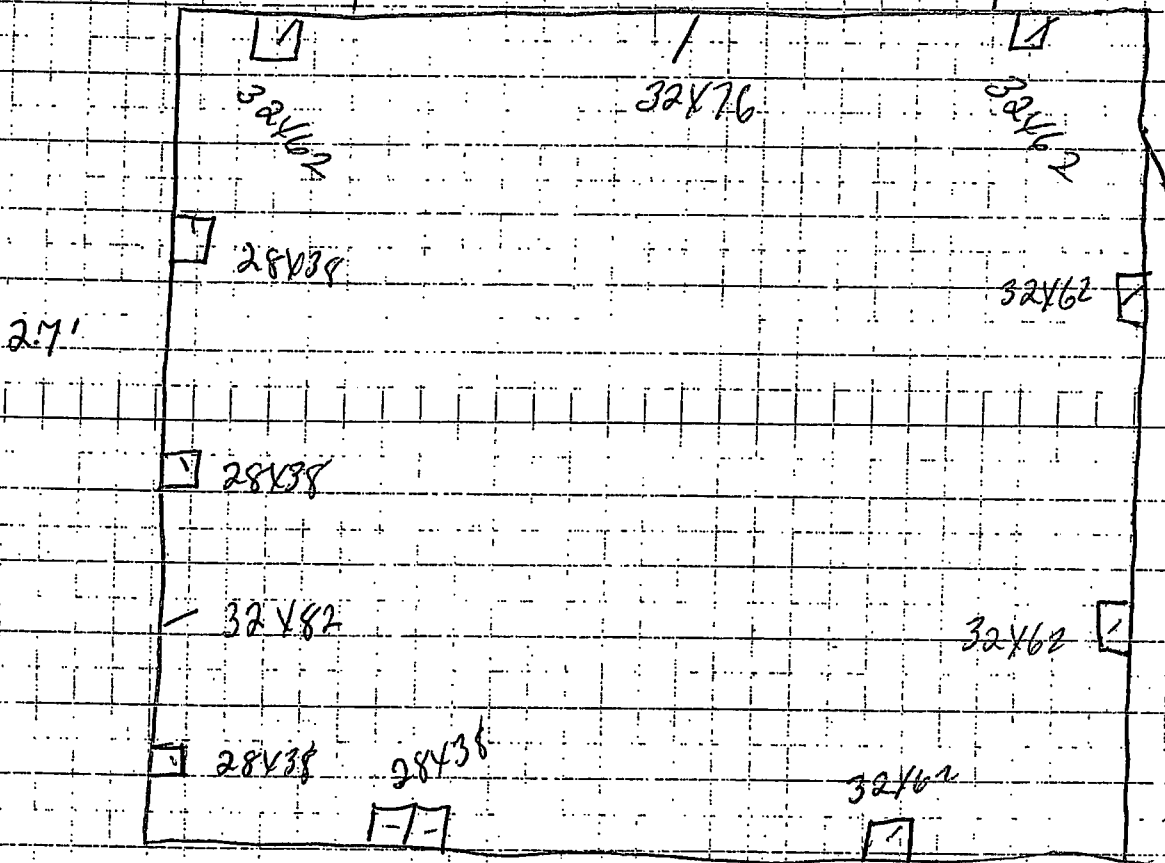 32X62
32X76
32X62
28X38
32X62
27'
28X38
32X82
32X62
28X38
28X38
32X62